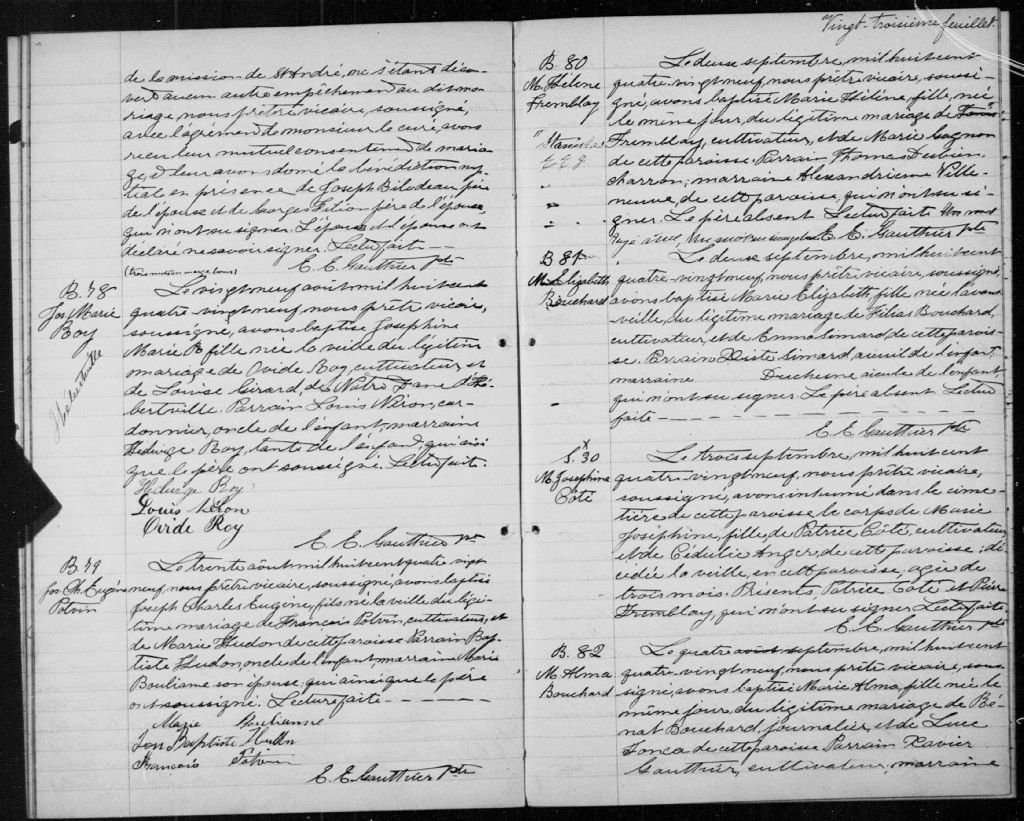 de la mission de St André, ne s'étant décou-
vert aucun autre empêchement au dit ma-
riage, nous prêtre vicaire, soussigné,
avec l'agrément de monsieur le curé, avons
reçu leur mutuel consentement de maria-
ge, et leur avons donné la bénédiction nup-
tiale en présence de Joseph Bilodeau père
de l'époux et de Georges Fition père de l'épouse,
qui n'ont su signer. L'époux et l'épouse ont
déclaré ne savoir signer. Lecture faite
E. E. Gauthier ptre
B. 78
Jos. Marie
Roy
Hébertville
Le vingt neuf août mil huit cent
quatre-vingt neuf, nous prêtre vicaire,
soussigné, avons baptisé Joséphine
Marie R fille, née la veille du légitime
mariage de Ovide Roy, cultivateur, et
de Louise Girard, de Notre Dame d'Hé-
bertville. Parrain Louis Néron, cor-
donnier, oncle de l'enfant, marraine
Hedwige Roy, tante de l'enfant, qui ainsi
que le père ont soussigné. Lecture faite.
Hedwige Roy
Louis Néron
Ovide Roy
E. E. Gauthier ptre
B. 79
Jos. Ch. Eugène
Potvin
Le trente août mil huit cent quatre vingt
neuf, nous prêtre vicaire, soussigné, avons baptisé
Joseph Charles Eugène, fils né la veille du légi-
time mariage de François Potvin, cultivateur, et
de Marie Hudon de cette paroisse. Parrain Bap-
tiste Hudon, oncle de l'enfant, marraine Marie
Boulianne son épouse, qui ainsi que le père
ont soussigné. Lecture faite
Marie Boulianne
Jean Baptiste Hudon
François Potvin
E. E. Gauthier ptre
Vingt-troisième feuillet.
B. 80
M. Hélène
Tremblay
" Stanislas
Le deux septembre, mil huit cent
quatre vingt neuf, nous prêtre vicaire, soussi-
gné, avons baptisé Marie Hélène, fille, née
le même jour, du légitime mariage de
Tremblay, cultivateur, et de Marie Gagnon
de cette paroisse. Parrain Thomas Dubien,
charron; marraine Alexandrienne Ville-
neuve, de cette paroisse, qui n'ont su si-
gner. Le père absent Lecture faite Un mot
rayé nul, E. E. Gauthier ptre
B. 81
M. Elizabeth
Bouchard
Le deux septembre, mil huit cent
quatre vingt neuf, nous prêtre vicaire, soussigné,
avons baptisé Marie Elizabeth, fille née l'avant-
veille, du légitime mariage de Elias Bouchard,
cultivateur, et de Emma Simard, de cette parois-
se. Parrain Simard, aïeul de l'enfant,
marraine Duchesne aïeule de l'enfant
qui n'ont su signer. Le père absent Lecture
faite
E. E. Gauthier ptre
S. 30
M. Joséphine
Côté
Le trois septembre, mil huit cent
quatre vingt neuf, nous prêtre vicaire,
soussigné, avons inhumé dans le cime-
tière de cette paroisse le corps de Marie
Joséphine, fille, de Patrice Côté, cultivateur
et de Cédulie Anger, de cette paroisse; dé-
cédée la veille, en cette paroisse, agée de
trois mois. Présents, Patrice Côté et Pierre
Tremblay, qui n'ont su signer. Lecture faite
E. E. Gauthier ptre
B. 82
M. Alma
Bouchard
Le quatre août septembre, mil huit cent
quatre-vingt neuf, nous prêtre vicaire, sous-
signé, avons baptisé Marie Alma, fille née le
même jour, du légitime mariage de Bé-
nat Bouchard, journalier, et de Luce
Foncé de cette paroisse Parrain Xavier
Gauthier, cultivateur, marraine